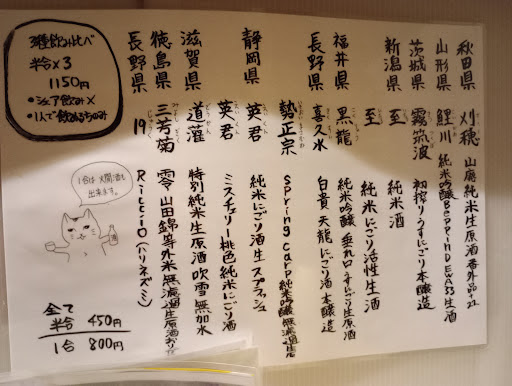 秋田県 刈穂 山廃純米生原酒番外品+21
山形県 鯉川 純米吟醸BeppinDEWA33生酒
茨城県 霧筑波 初搾りうすにごり本醸造
新潟県 至 純米酒
至 純米にごり活性生酒
福井県 黒龍 純米吟醸 垂れ口うすにごり生原酒
長野県 喜久水 白貴天龍にごり酒 本醸造
勢正宗 Spring carp純米吟醸無濾過生原酒
静岡県 英君 純米にごり酒生スプラッシュ
英君 ミスチェリー桃色純米にごり酒
滋賀県 道灌 特別純米生原酒吹雪 無加水
徳島県 三芳菊 零 山田錦等外米無濾過生原酒
長野県 19 Riccio(ハリネズミ)
3種飲み比べ
半合×3
1150円
・シェア飲み×
・1人で飲める方のみ
1合は大関酒も
出来ます。
全て
半合 450円
1合 800円